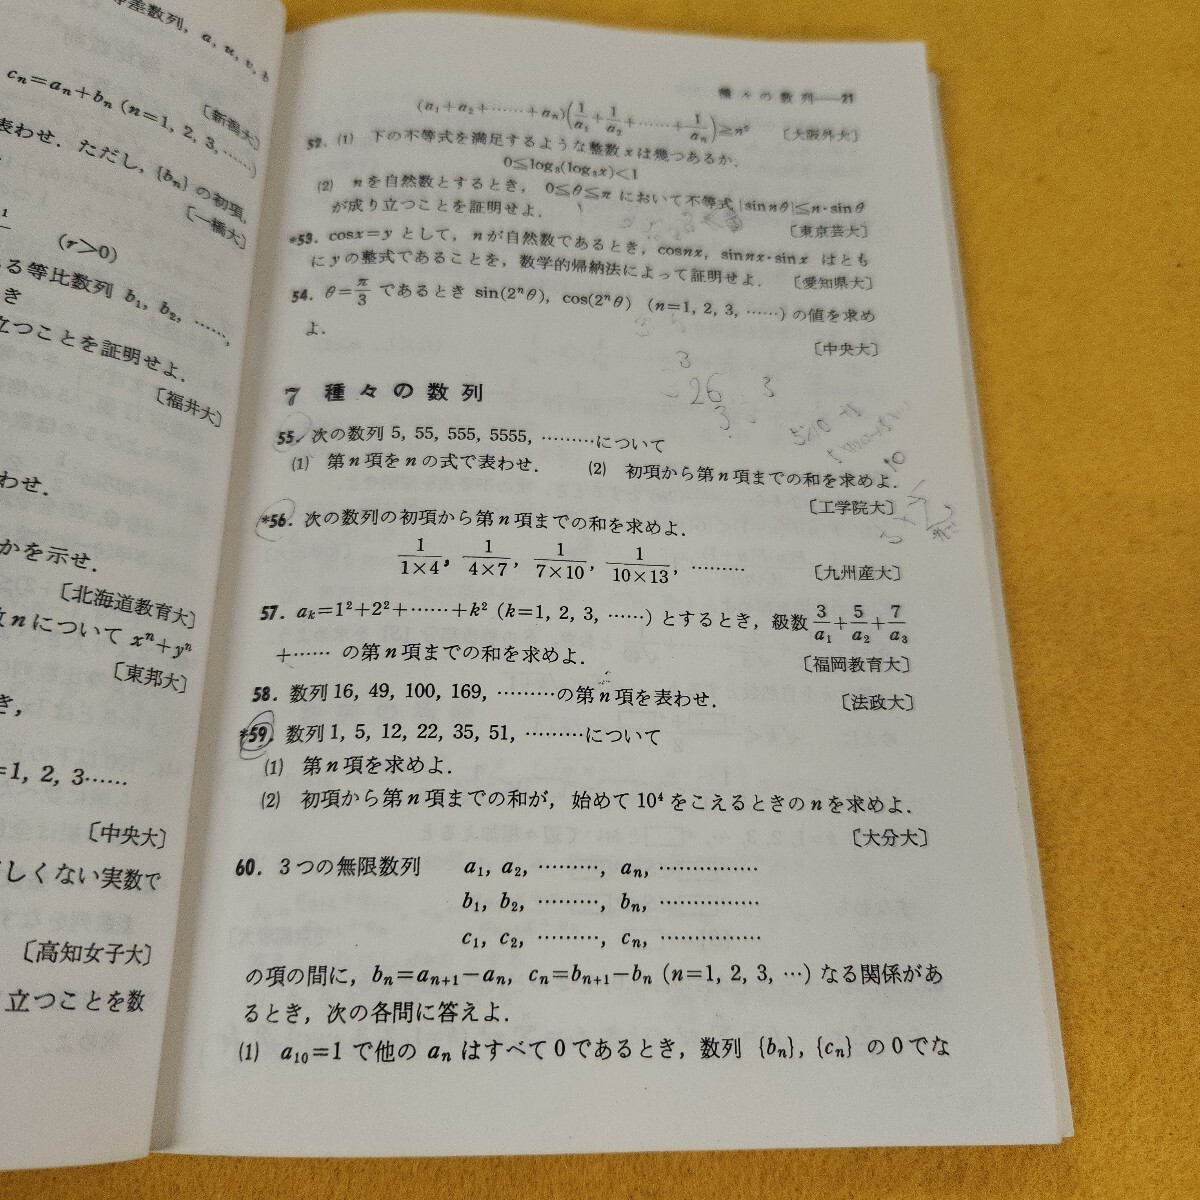 等差数列, a, u, v, b
c_n=a_n+b_n (n=1, 2, 3, ……)
〔新潟大〕
表わせ. ただし, {b_n} の初項,
〔一橋大〕
(r>0)
る等比数列 b₁, b₂, ……,
き
立つことを証明せよ.
〔福井大〕
わせ.
かを示せ.
〔北海道教育大〕
数 n について xⁿ+yⁿ
〔東邦大〕
き,
=1, 2, 3……
〔中央大〕
しくない実数で
〔高知女子大〕
立つことを数
種々の数列——21
(a₁+a₂+……+a_n)(1/a₁+1/a₂+……+1/a_n)≧n² 〔大阪外大〕
52. (1) 下の不等式を満足するような整数 x は幾つあるか.
0≦log₃(log₃x)<1
(2) n を自然数とするとき, 0≦θ≦π において不等式 |sin nθ|≦n·sinθ
が成り立つことを証明せよ. 〔東京芸大〕
*53. cosx=y として, n が自然数であるとき, cosnx, sinnx·sinx はとも
に y の整式であることを, 数学的帰納法によって証明せよ. 〔愛知県大〕
54. θ=π/3 であるとき sin(2ⁿθ), cos(2ⁿθ) (n=1, 2, 3, ……) の値を求め
よ. 〔中央大〕
7 種々の数列
55. 次の数列 5, 55, 555, 5555, ………について
(1) 第 n 項を n の式で表わせ. (2) 初項から第 n 項までの和を求めよ.
〔工学院大〕
*56. 次の数列の初項から第 n 項までの和を求めよ.
1/(1×4), 1/(4×7), 1/(7×10), 1/(10×13), ……… 〔九州産大〕
57. a_k=1²+2²+……+k² (k=1, 2, 3, ……) とするとき, 級数 3/a₁+5/a₂+7/a₃
+…… の第 n 項までの和を求めよ. 〔福岡教育大〕
58. 数列 16, 49, 100, 169, ………の第 n 項を表わせ. 〔法政大〕
*59. 数列 1, 5, 12, 22, 35, 51, ………について
(1) 第 n 項を求めよ.
(2) 初項から第 n 項までの和が, 始めて 10⁴ をこえるときの n を求めよ.
〔大分大〕
60. 3つの無限数列 a₁, a₂, ………, a_n, ……………
b₁, b₂, ………, b_n, ……………
c₁, c₂, ………, c_n, ……………
の項の間に, b_n=a_{n+1}−a_n, c_n=b_{n+1}−b_n (n=1, 2, 3, …) なる関係があ
るとき, 次の各問に答えよ.
(1) a₁₀=1 で他の a_n はすべて 0 であるとき, 数列 {b_n}, {c_n} の 0 でな